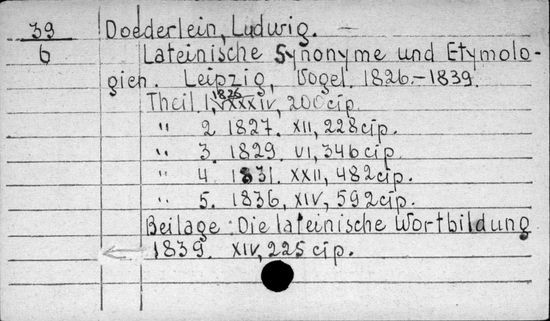 39 Doederlein, Ludwig.
6 Lateinische Synonyme und Etymolo-
gien. Leipzig, Vogel. 1826.-1839.
Theil 1, 1826 XXXIV, 200 cip.
" 2 1827. XII, 228 cip.
" 3. 1829. VI, 346 cip.
" 4 1831. XXII, 482 cip.
" 5. 1836, XIV, 592 cip.
Beilage: Die lateinische Wortbildung
1839. XIV, 225 cip.